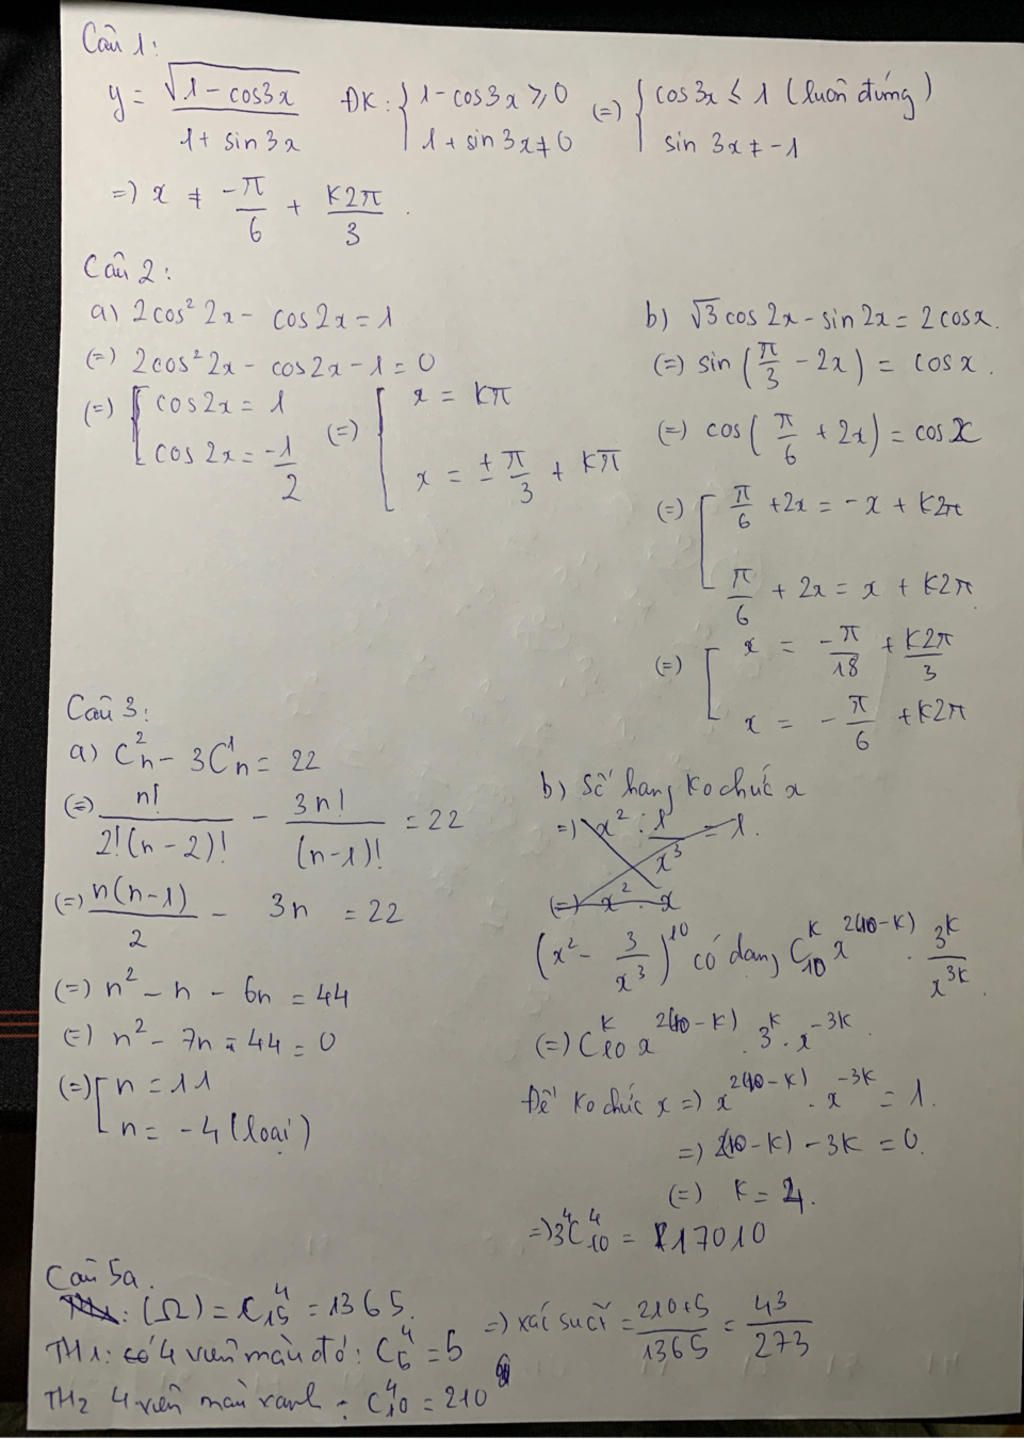 Câu 1:
y = √(1 - cos3x) / (1 + sin 3x) ĐK: { 1 - cos3x ≥ 0 ; 1 + sin 3x ≠ 0 (=) { cos3x ≤ 1 (luôn đúng) ; sin 3x ≠ -1
=) x ≠ -π/6 + k2π/3 .
Câu 2:
a) 2cos² 2x - cos2x = 1
(=) 2cos² 2x - cos2x - 1 = 0
(=) [ cos2x = 1 ; cos 2x = -1/2 (=) [ x = kπ ; x = ± π/3 + kπ
b) √3 cos 2x - sin 2x = 2 cosx.
(=) sin (π/3 - 2x) = cos x .
(=) cos (π/6 + 2x) = cos x
(=) [ π/6 + 2x = -x + k2π ; π/6 + 2x = x + k2π
(=) [ x = -π/18 + k2π/3 ; x = - π/6 + k2π
Câu 3:
a) C²n - 3C¹n = 22
(=) n! / 2!(n-2)! - 3n! / (n-1)! = 22
(=) n(n-1)/2 - 3n = 22
(=) n² - n - 6n = 44
(=) n² - 7n - 44 = 0
(=) [ n = 11 ; n = -4 (loại)
b) Số hạng ko chứa x
=) x² : 1/x³ = 1.
(=) x² . x
(x² - 3/x³)^10 có dạng C^k_10 x^2(10-k) . 3^k/x^3k .
(=) C^k_10 x^2(10-k) . 3^k . x^-3k .
Để ko chứa x =) x^2(10-k) . x^-3k = 1.
=) 2(10-k) - 3k = 0.
(=) k = 4.
=) 3^4 C^4_10 = 17010
Câu 5a.
: (Ω) = C^4_15 = 1365.
TH1: có 4 viên màu đỏ: C^4_5 = 5
TH2 4 viên màu xanh : C^4_10 = 210
=) xác suất = 210+5/1365 = 43/273